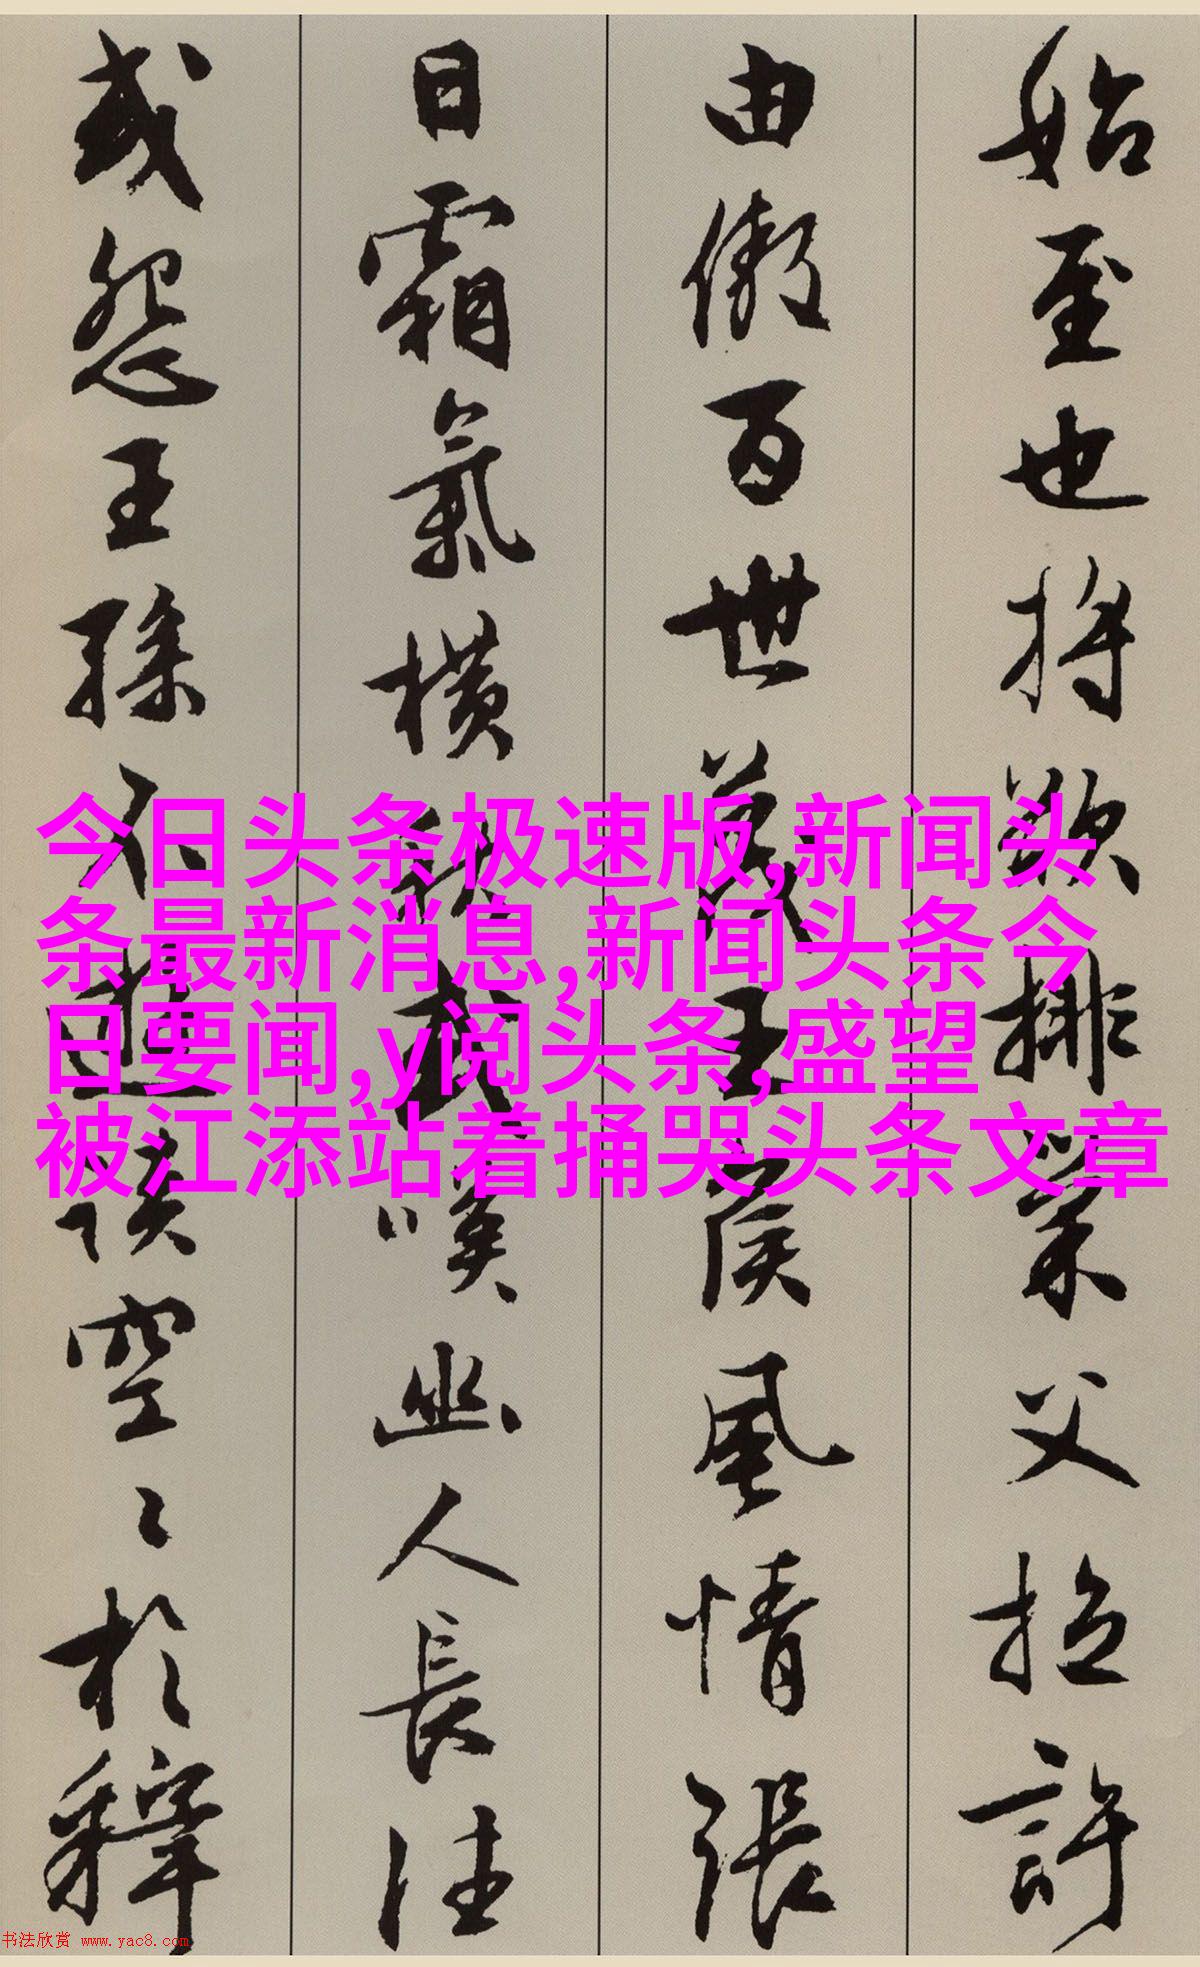 始至也将欲排巢父拉許
由傲百世蔑王侯風情張
日霜氣橫秋或嘆幽人長往
或怨王孫不遊談空〻於釋
今日头条极速版,新闻头
条最新消息,新闻头条今
日要闻,y阅头条,盛望
被江添站着捅哭头条文章
书法欣赏 www.yac8.com